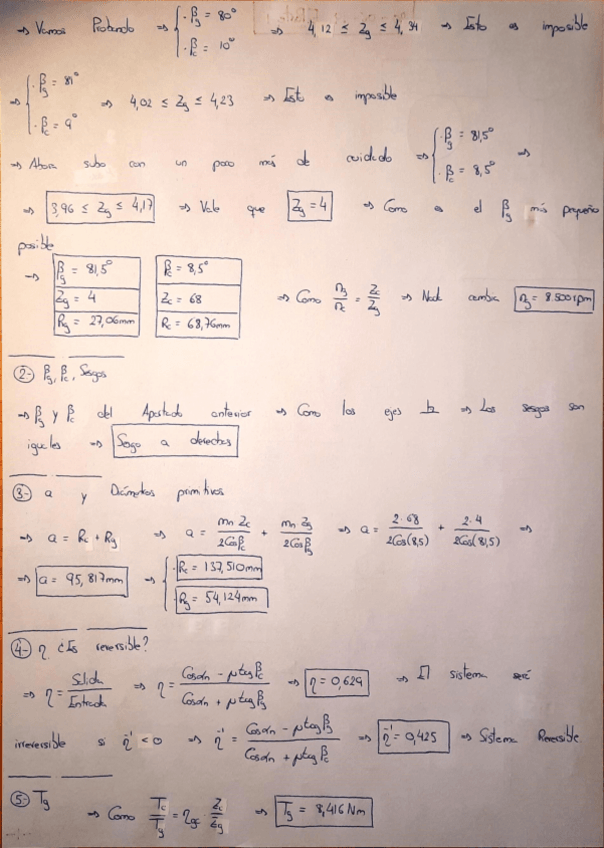 ⇒ Vamos Probando ⇒ { · βg = 80° · βc = 10° ⇒ 4,12 ≤ Zg ≤ 4,34 ⇒ Esto es imposible
⇒ { · βg = 81° · βc = 9° ⇒ 4,02 ≤ Zg ≤ 4,23 ⇒ Esto es imposible
⇒ Ahora subo con un poco más de cuidado ⇒ { · βg = 81,5° · βc = 8,5° ⇒
⇒ 3,96 ≤ Zg ≤ 4,17 ⇒ Vale que Zg = 4 ⇒ Como es el βg más pequeño
posible
⇒ βg = 81,5° βc = 8,5°
Zg = 4 Zc = 68 ⇒ Como ng/nc = Zc/Zg ⇒ Nada cambia ng = 8.500 rpm
Rg = 27,06mm Rc = 68,76mm
2- βg, βc, Sesgos
⇒ βg y βc del Apartado anterior ⇒ Como los ejes ⇒ Los sesgos son
iguales ⇒ Sesgo a derechas
3- a y Diámetros primitivos
⇒ a = Rc + Rg ⇒ a = mn Zc/2Cosβc + mn Zg/2Cosβg ⇒ a = 2·68/2Cos(8,5) + 2·4/2Cos(81,5) ⇒
⇒ a = 95,817mm ⇒ { · Rc = 137,510mm · Rg = 54,124mm
4- η ¿Es reversible?
⇒ η = Salida/Entrada ⇒ η = Cosαn - μtagβc/Cosαn + μtagβg ⇒ η = 0,629 ⇒ El sistema será
irreversible si η⁻¹ < 0 ⇒ η⁻¹ = Cosαn - μtagβg/Cosαn + μtagβc ⇒ η⁻¹ = 0,425 ⇒ Sistema Reversible.
5- Tg ⇒ Como Tc/Tg = ηgc · Zc/Zg ⇒ Tg = 8,416 Nm